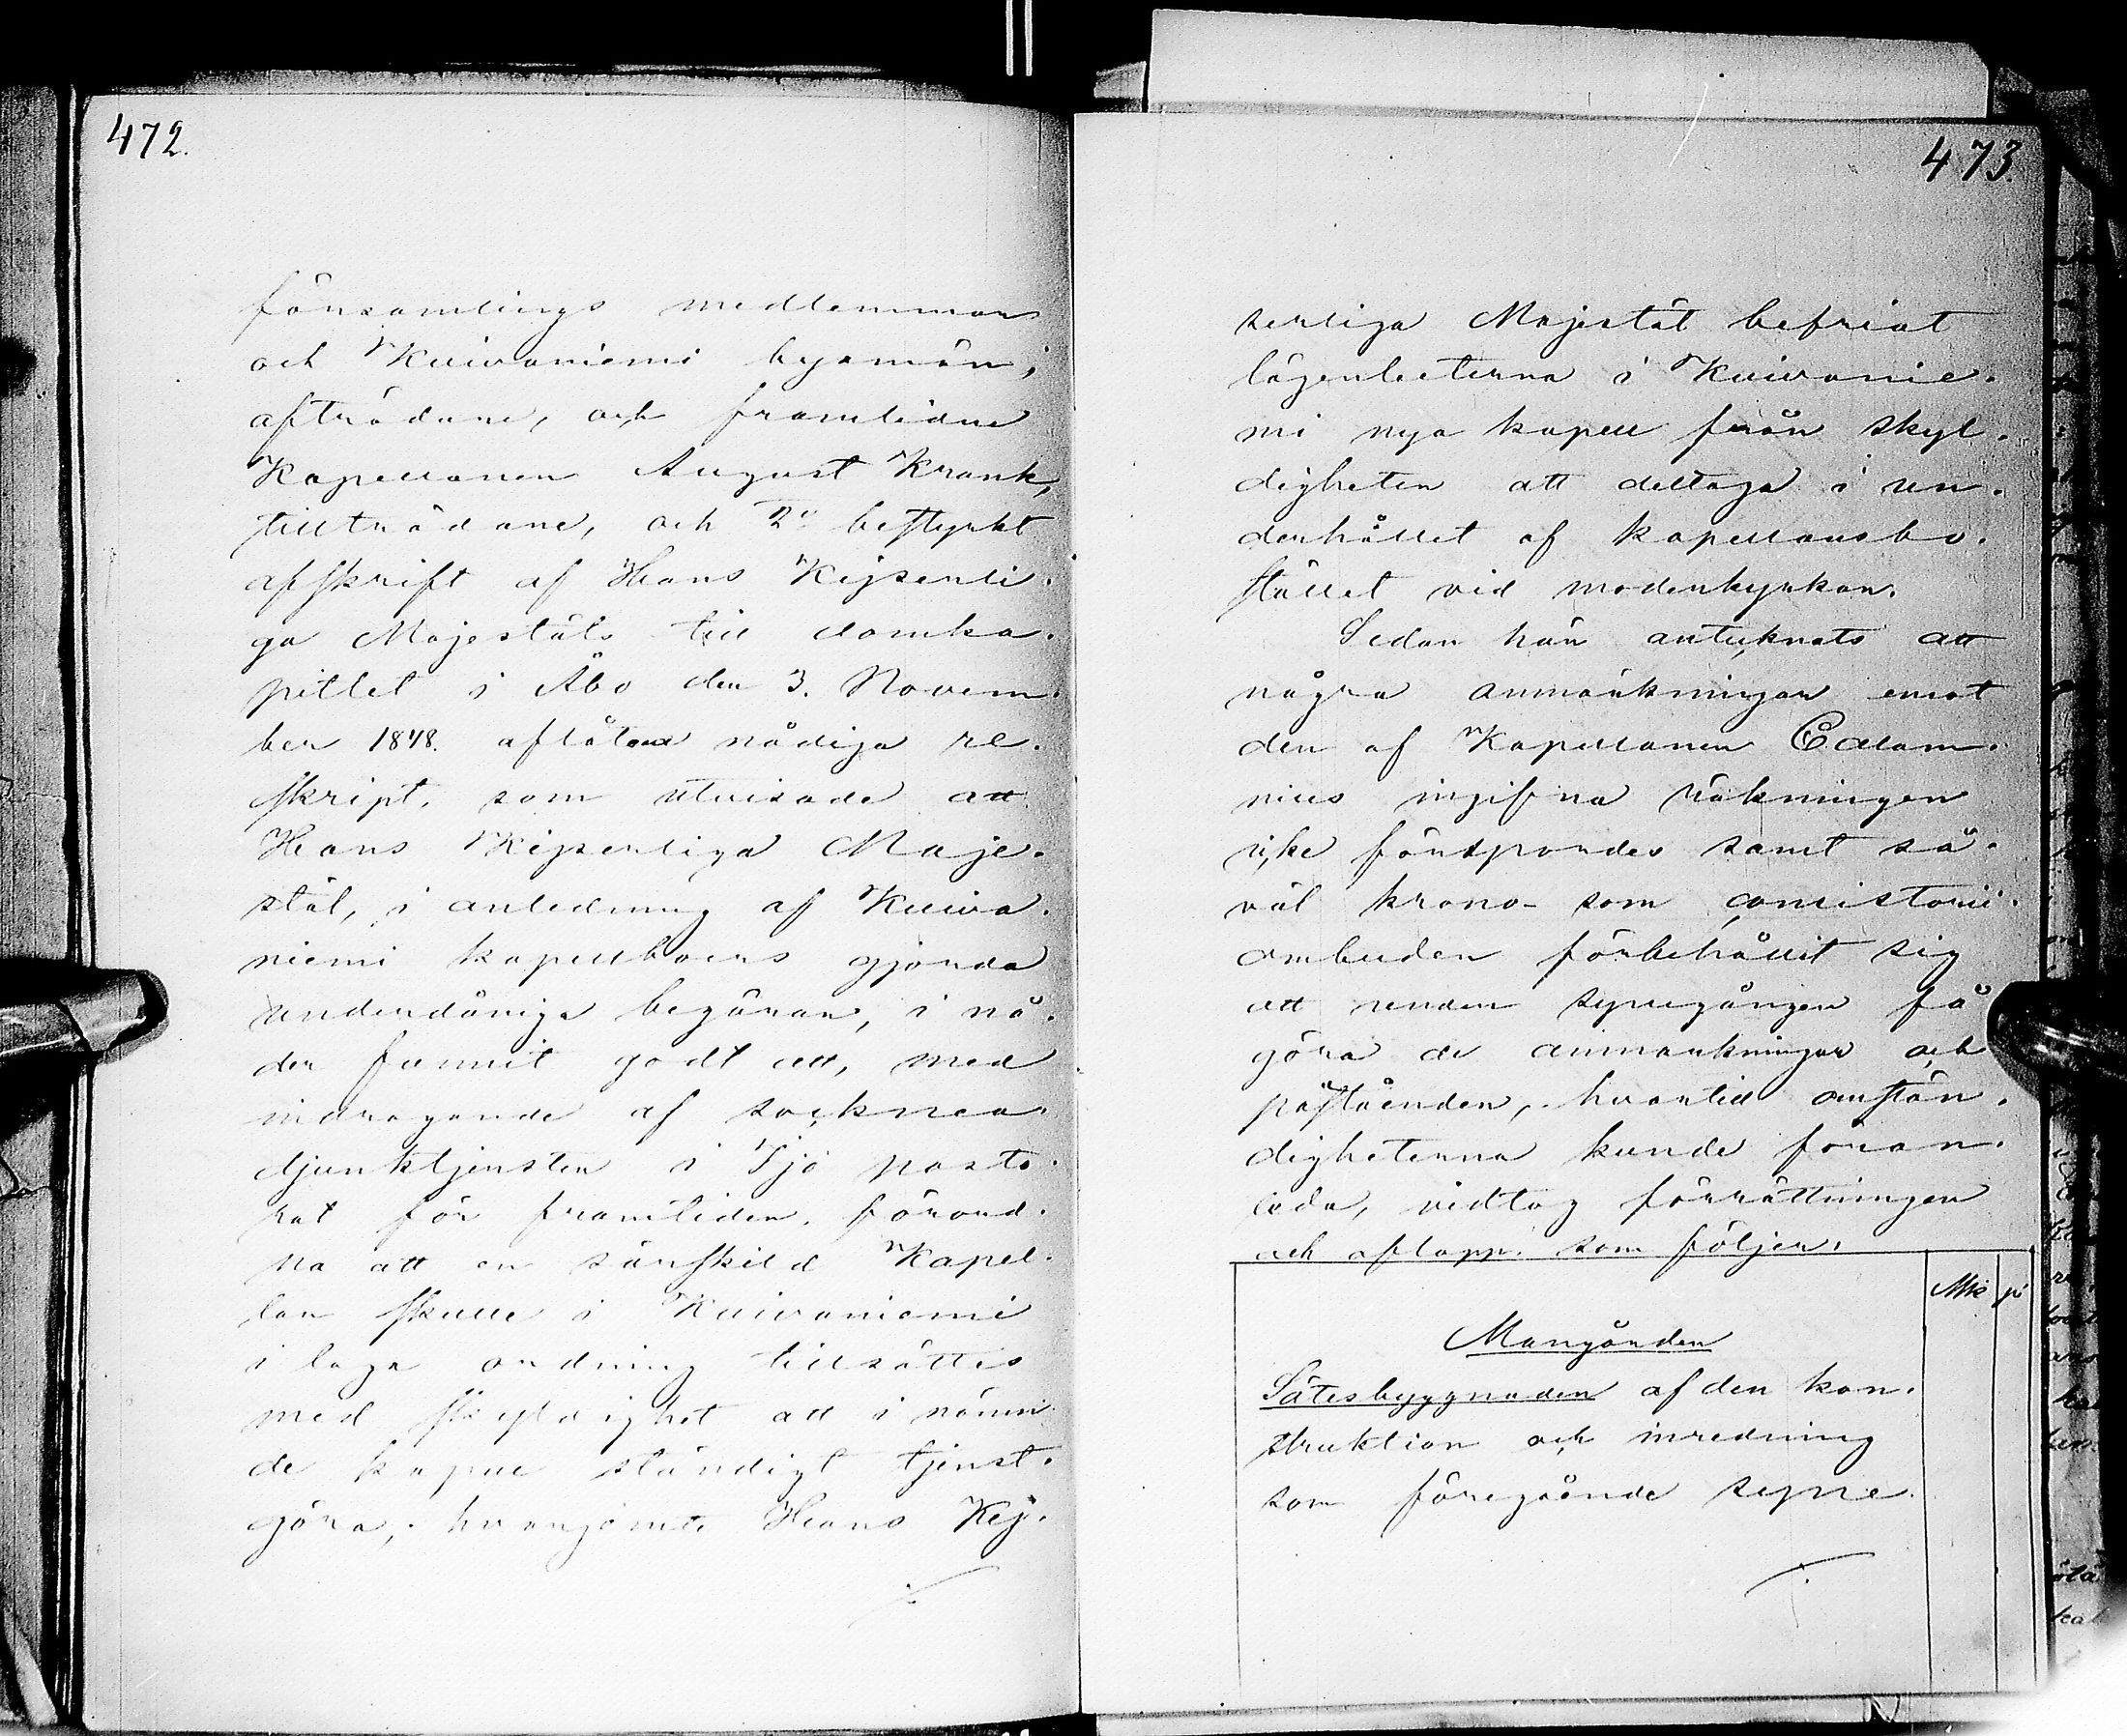 472.
församlings medlemmar
och Kuivaniemi byamän,
afträdare, och framlidne
Kapellanen August Krank,
tillträdare, och 2:o bestyrkt
afskrift af Hans Kejserli-
ga Majestäts till domka-
pitlet i Åbo den 3. Novem-
ber 1848. aflåtna nådiga re-
skript, som utvisade att
Hans Kejserliga Maje-
stät, i anledning af Kuiva-
niemi kapellboers gjorda
underdåniga begäran, i nå-
der funnit godt att, med
indragande af socknea-
djunktjensten i Ijo pasto-
rat för framtiden, förord-
na att en särskild Kapel-
lan skulle i Kuivaniemi
i laga ordning tillsättes
med skyldighet att i nämn-
de kapell ständigt tjenst-
göra, hvarjemte Hans Kej-
473.
serliga Majestät befriat
lägenheterna i Kuivanie-
mi nya kapell från skyl-
digheten att deltaga i un-
derhållet af kapellansbo-
stället vid moderkyrkan.
Sedan här antecknats att
några anmärkningar emot
den af Kapellanen Calam-
nius ingifna räkningen
icke förspordes samt så-
väl krono- som consistorii-
ombuden förbehållit sig
att under synegången få
göra de anmärkningar och
påståenden, hvartill omstän-
digheterna kunde föran-
leda, vidtog förrättningen
och aflopp som följer.
Mk p
Mangården
Sätesbyggnaden af den kon-
struktion och inredning
som föregående syne